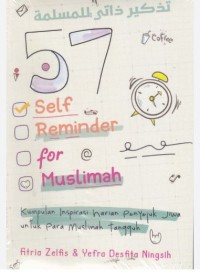 تذكير ذاتي للمسلمة
57
Coffee
Self
Reminder
for
@
Muslimah
Kumpulan Inspirasi Harian Penyejuk Jiwa
untuk Para Muslimah Tangguh
Fitria Zelfis & Yefro Desfita Ningsih